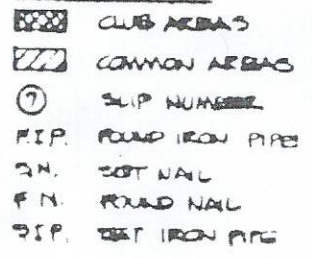 CLUB AREAS
COMMON AREAS
? SLIP NUMBER
F.I.P. FOUND IRON PIPE
S.N. SET NAIL
F.N. FOUND NAIL
S.I.P. SET IRON PIPE